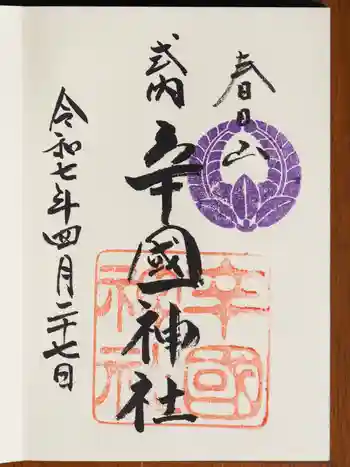 春日山
式内
辛國神社
令和七年四月二十七日
辛國
神社